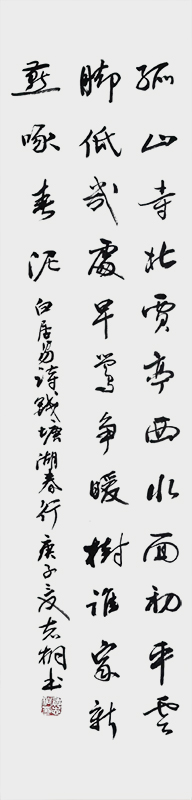 孤山寺北賈亭西水面初平雲
脚低幾處早鶯争暖樹誰家新
燕啄春泥
白居易诗錢塘湖春行庚子夏志桐书